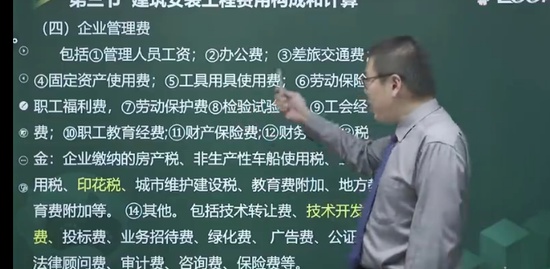 第三节 建筑安装工程费用构成和计算
(四)企业管理费
包括①管理人员工资;②办公费;③差旅交通费;
④固定资产使用费;⑤工具用具使用费;⑥劳动保险
职工福利费,⑦劳动保护费⑧检验试验 ⑨工会经
费;⑩职工教育经费;⑪财产保险费;⑫财务 税
金:企业缴纳的房产税、非生产性车船使用税、
用税、印花税、城市维护建设税、教育费附加、地方
育费附加等。⑭其他。包括技术转让费、技术开发
费、投标费、业务招待费、绿化费、广告费、公证
法律顾问费、审计费、咨询费、保险费等。